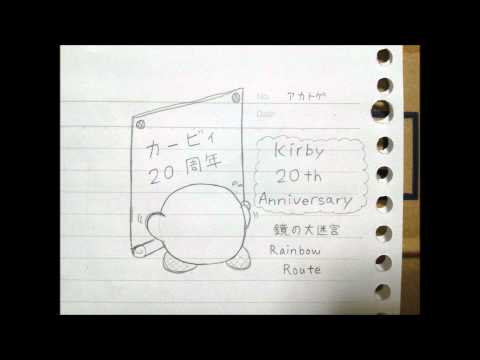 No.
アカトゲ
Date
カービィ
20周年
Kirby
20th
Anniversary
鏡の大迷宮
Rainbow
Route